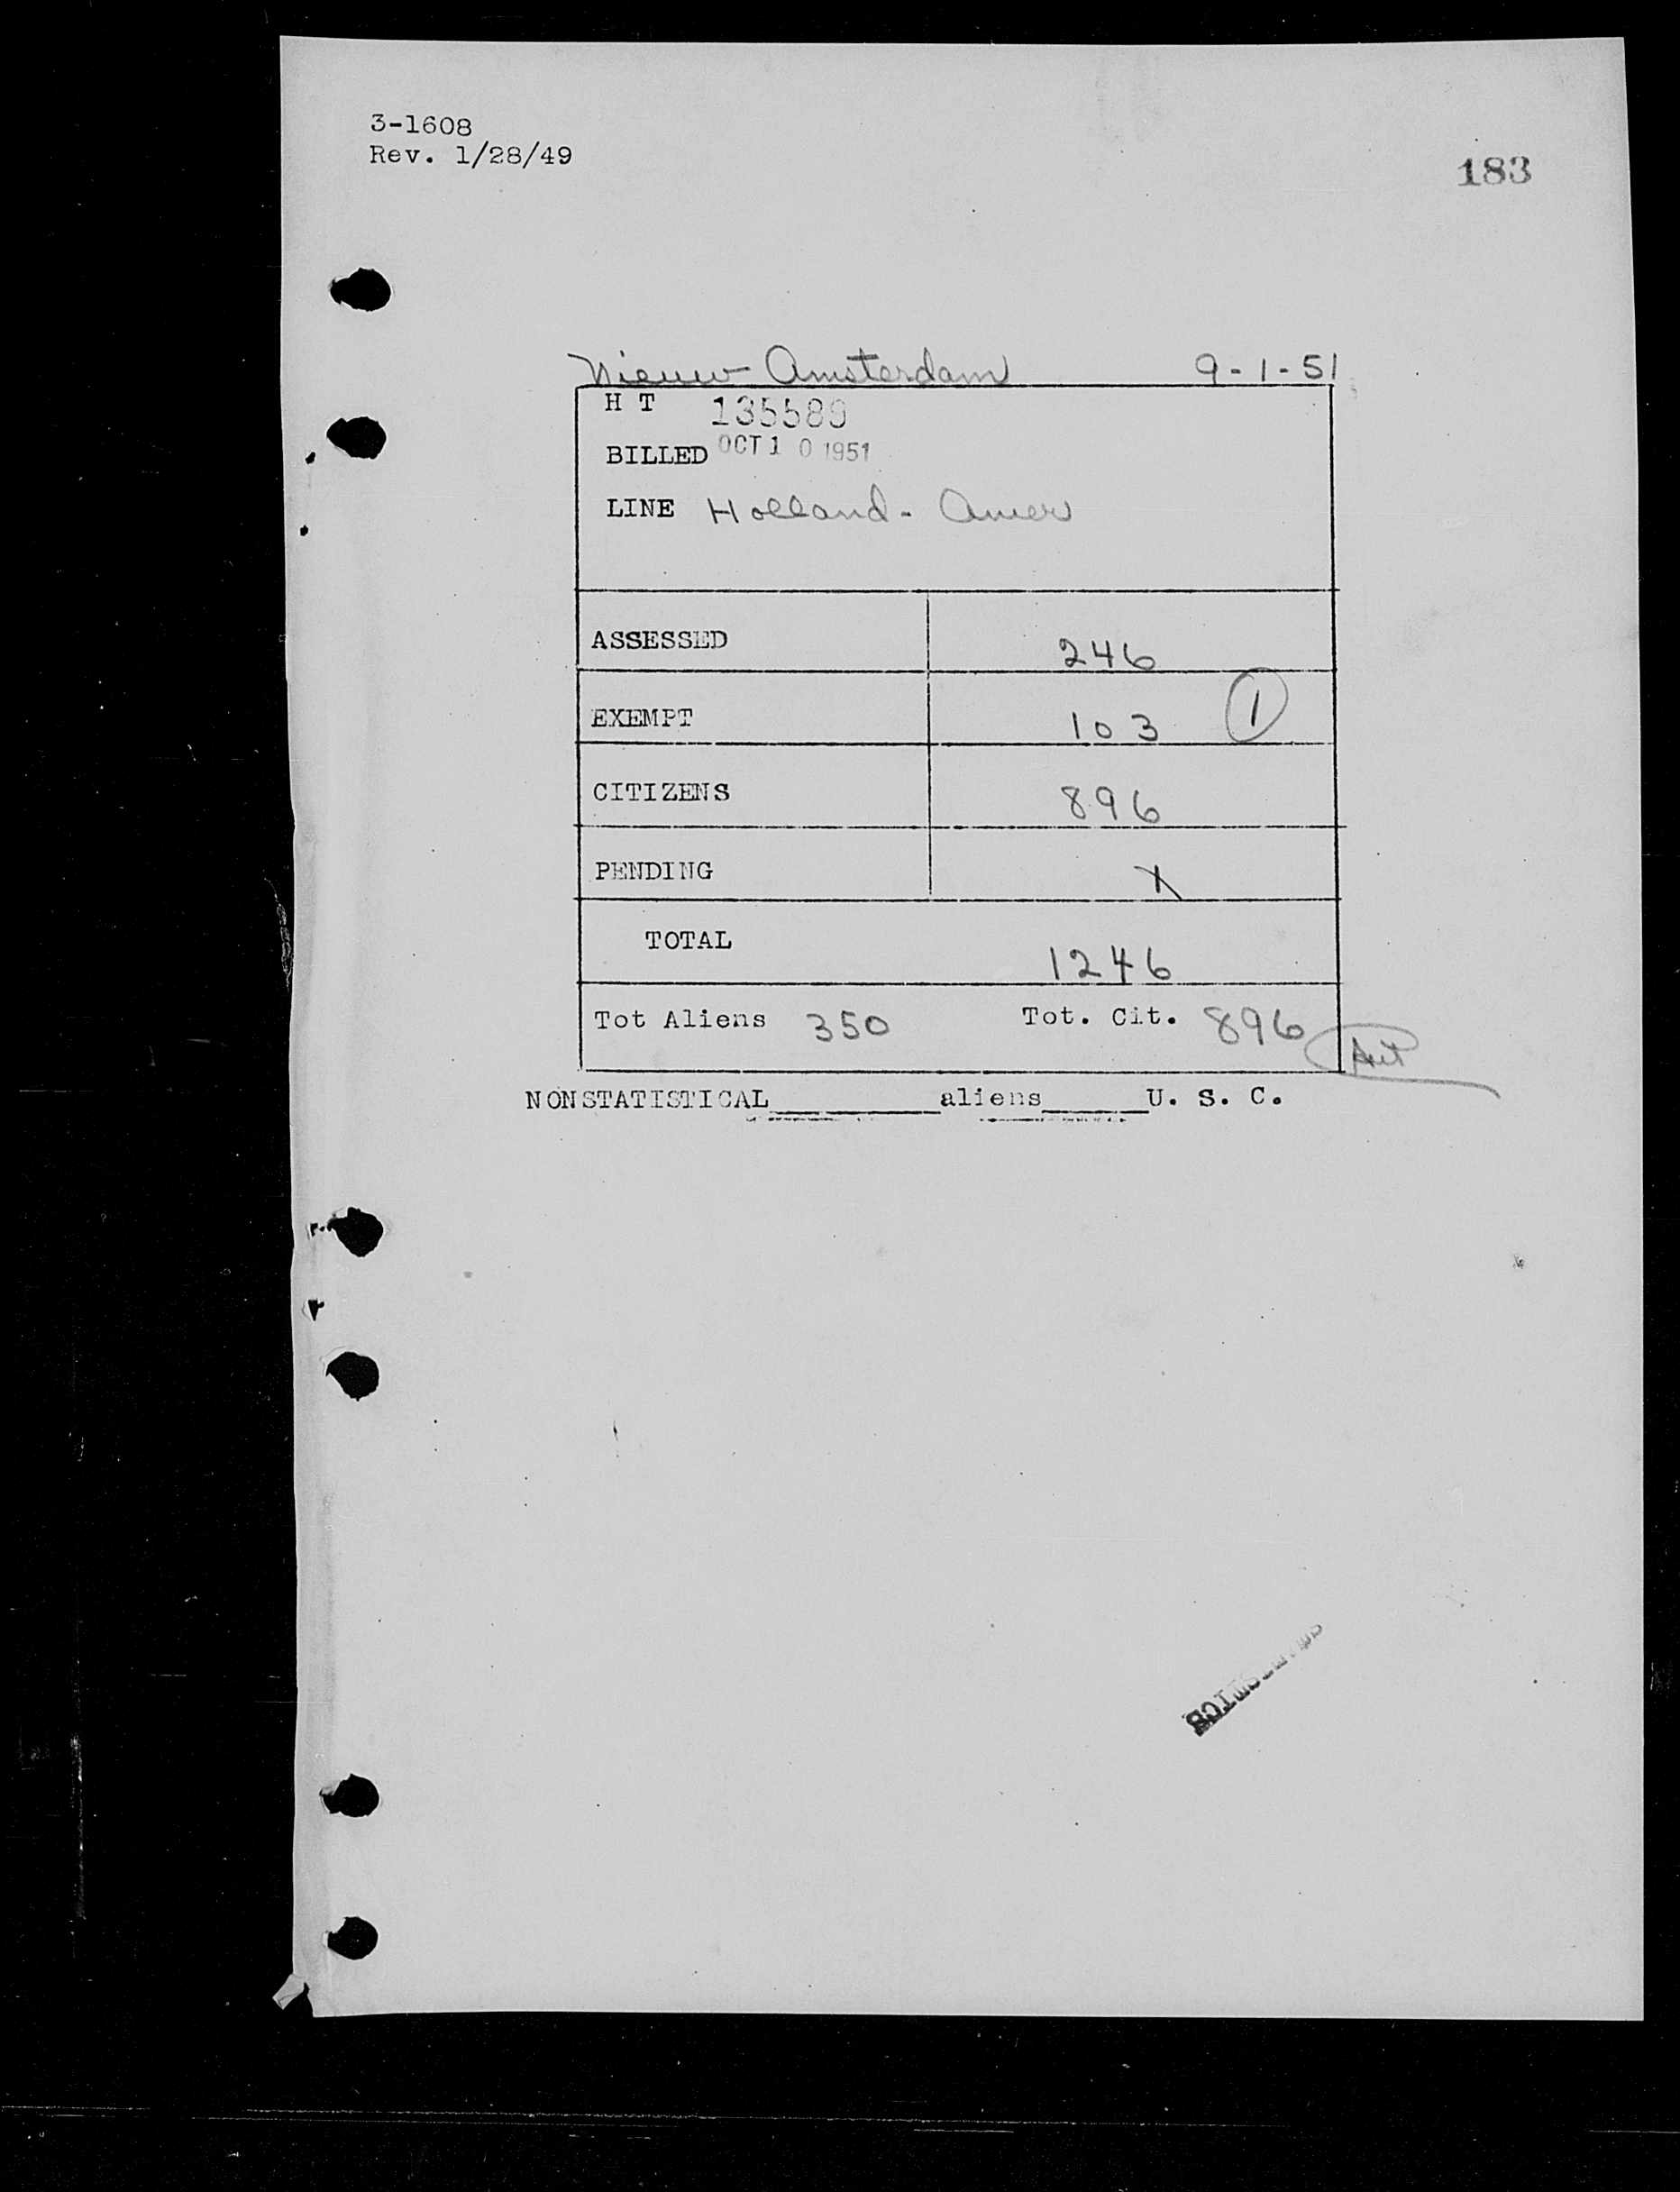 3-1608
Rev. 1/28/49
183
Nieuw Amsterdam 9-1-51
H T 135589
BILLED OCT 10 1951
LINE Holland-Amer
ASSESSED 246
EXEMPT 103 1
CITIZENS 896
PENDING X
TOTAL 1246
Tot Aliens 350 Tot. Cit. 896
NONSTATISTICAL aliens U. S. C.